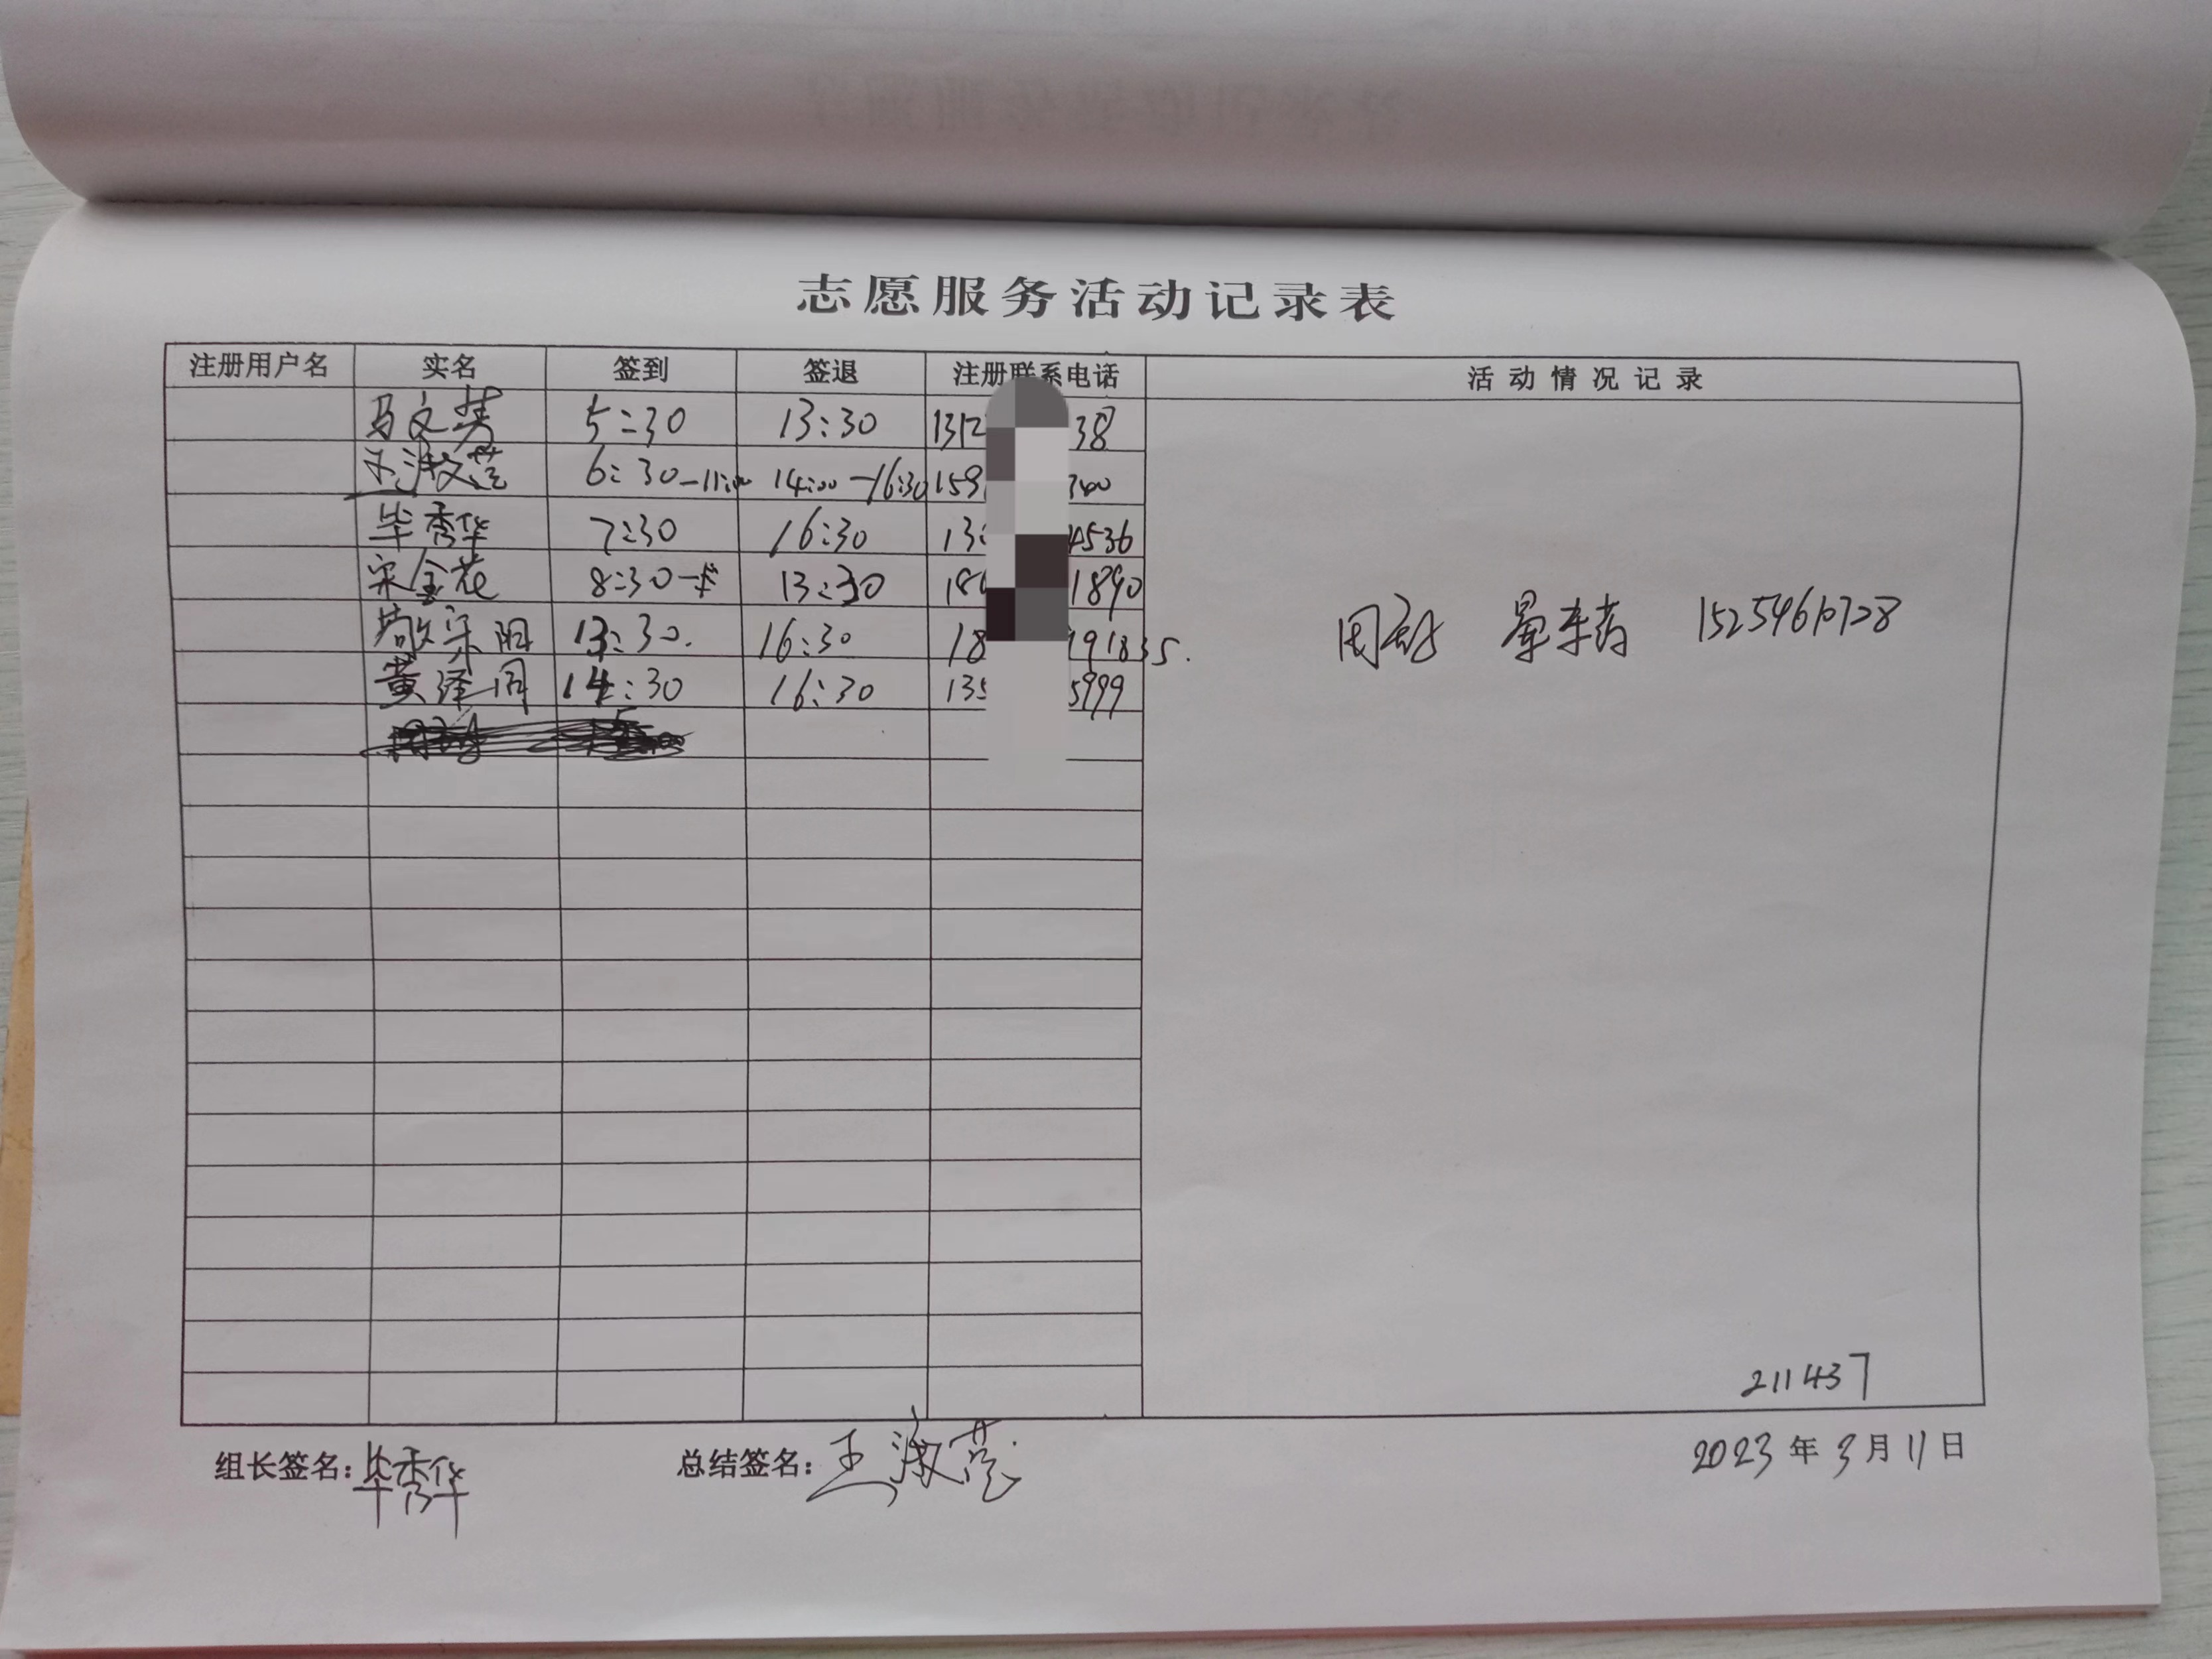 志愿服务活动记录表
注册用户名 实名 签到 签退 注册联系电话 活动情况记录
马文芳 5:30 13:30 1312 38
王淑范 6:30-11:00 14:00-16:30 159 300
毕秀华 7:30 16:30 13 4536
宋金花 8:30 13:30 18 1890
13:30. 16:30 18 191835.
黄泽同 14:30 16:30 135 5999
211437
组长签名:毕秀华 总结签名:王淑范 2023年3月11日